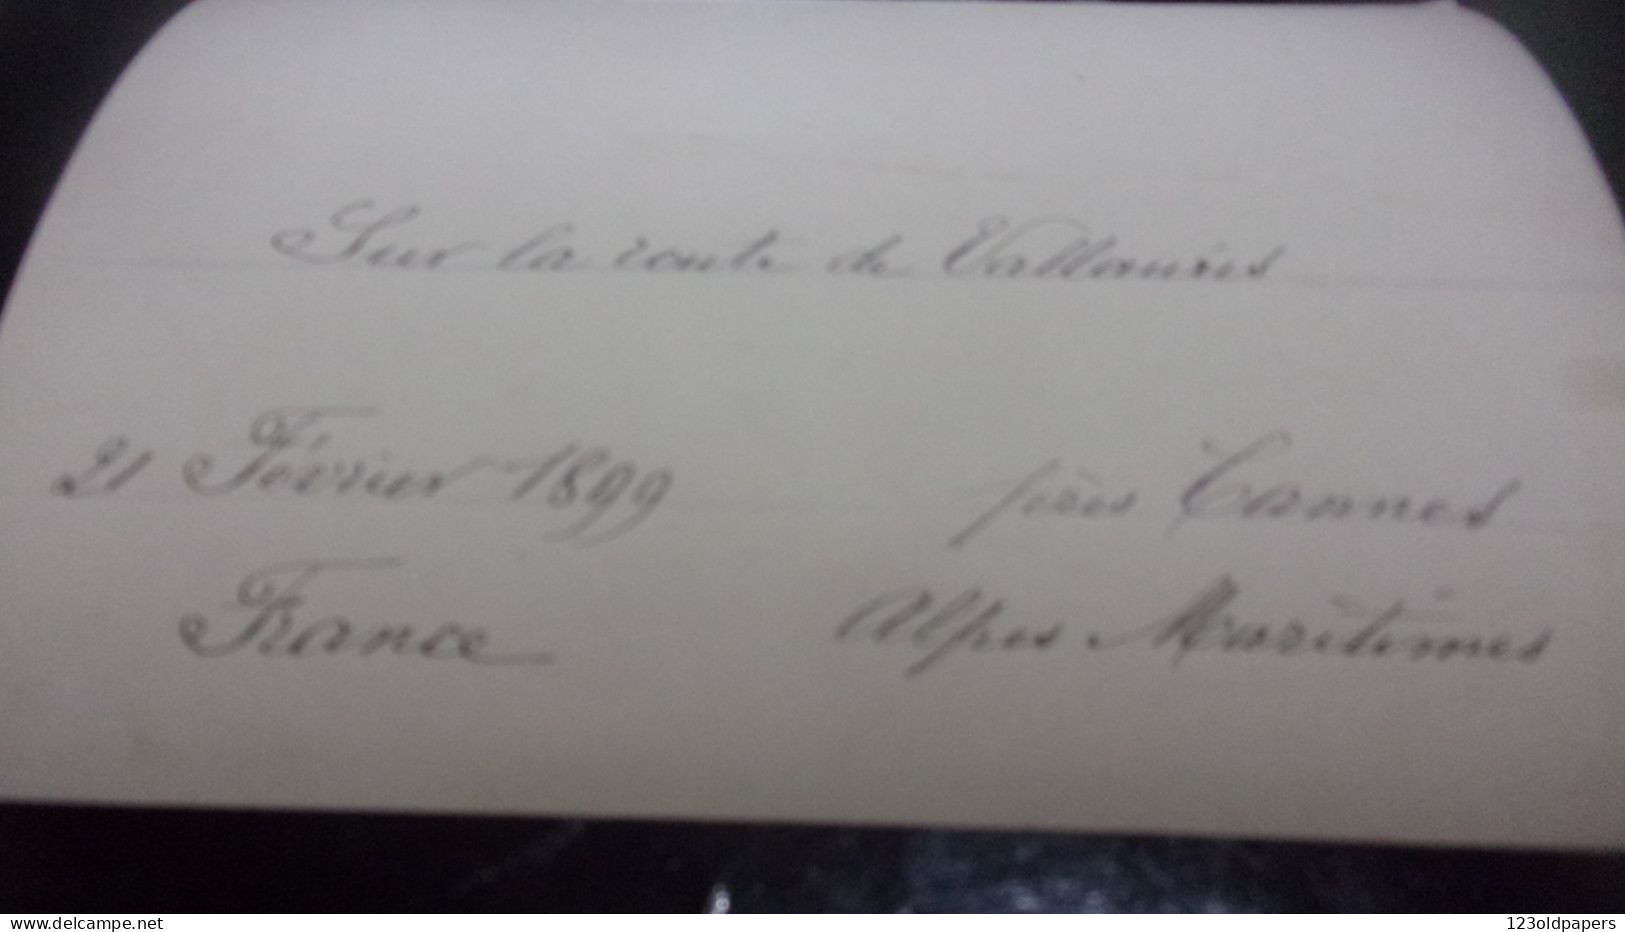 Sur la route de Vallauris
21 Février 1899 près Cannes
France Alpes Maritimes
www.delcampe.net 123oldpapers